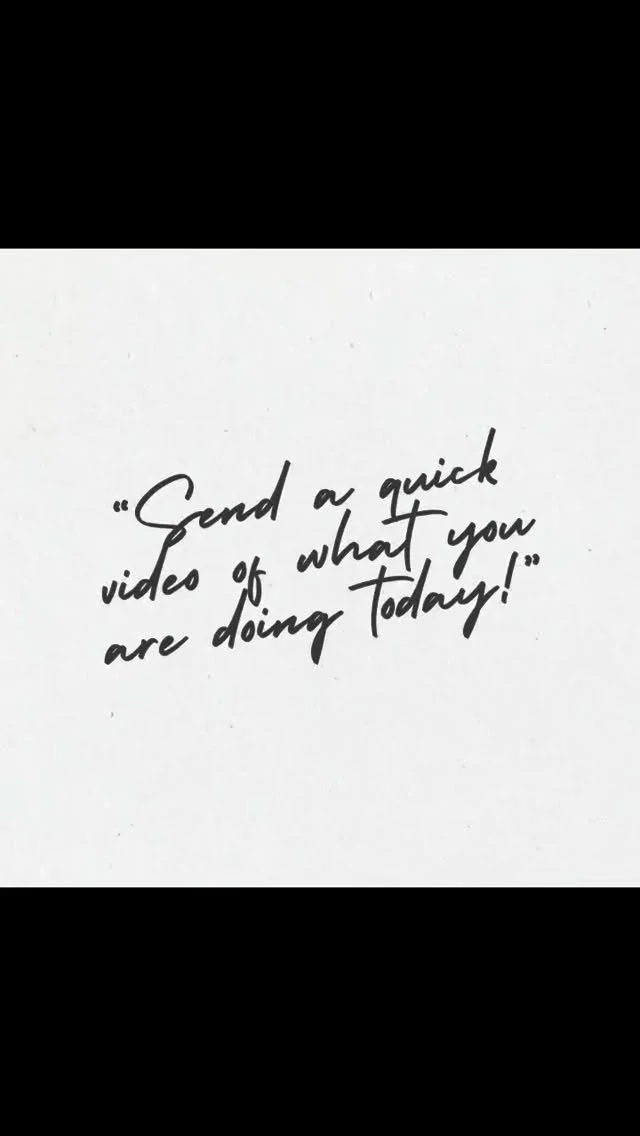 “Send a quick
video of what you
are doing today!”